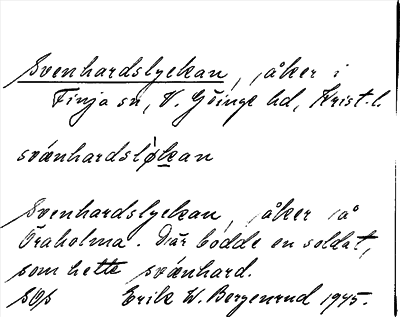 Svenhardslyckan, åker i
Finja sn, V. Göinge hd, Krist. l.
svänhardsløkan
Svenhardslyckan, åker på
Öraholma. Där bodde en soldat,
som hette svänhard.
Erik W. Bergenrud 1945.